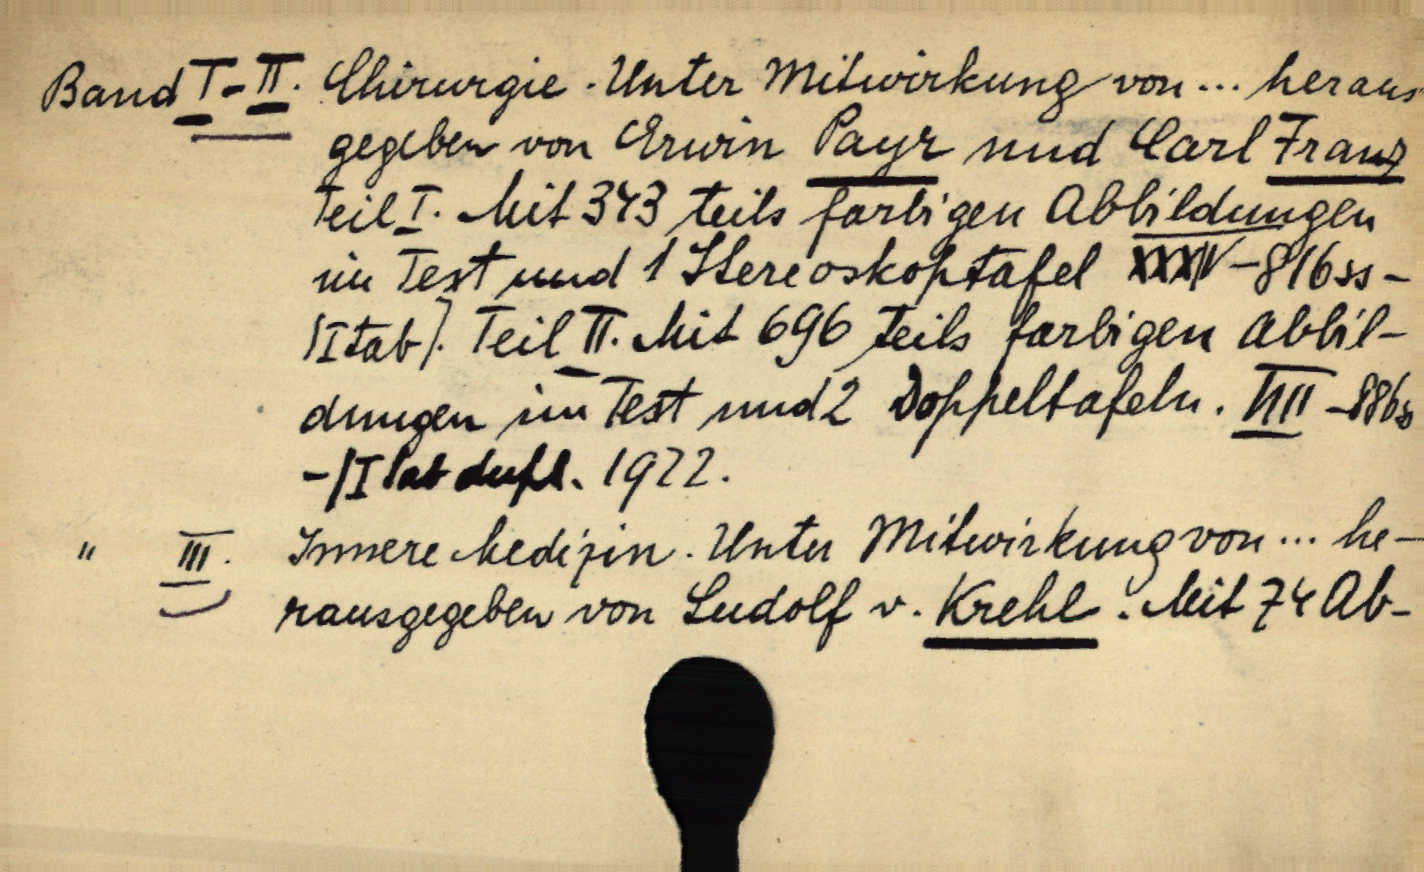 Band I-II. Chirurgie. Unter Mitwirkung von... heraus
gegeben von Erwin Payr und Carl Franz
Teil I. Mit 343 teils farbigen Abbildungen
im Text und 1 Stereoskoptafel XXXIV-816 ss-
[I tab]. Teil II. Mit 696 teils farbigen Abbil-
dungen im Text und 2 Doppeltafeln. VIII-886 s
-[I tab dupl. 1922.
" III. Innere Medizin. Unter Mitwirkung von... he-
rausgegeben von Ludolf v. Krehl. Mit 74 Ab-